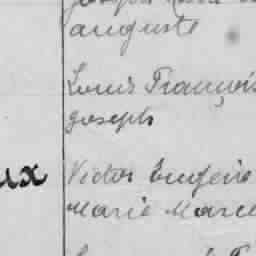 auguste
Louis François
joseph
ux Victor Eugène
Marie Marce